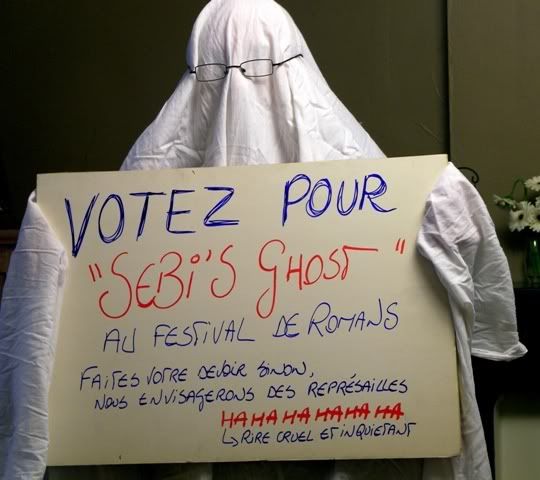 VOTEZ POUR
"SEBi'S GHOST"
AU FESTIVAL DE ROMANS
FAITES VOTRE DEVOIR SINON,
NOUS ENVISAGERONS DES REPRÉSAILLES
HA HA HA HA HA HA
↳ RIRE CRUEL ET INQUIETANT